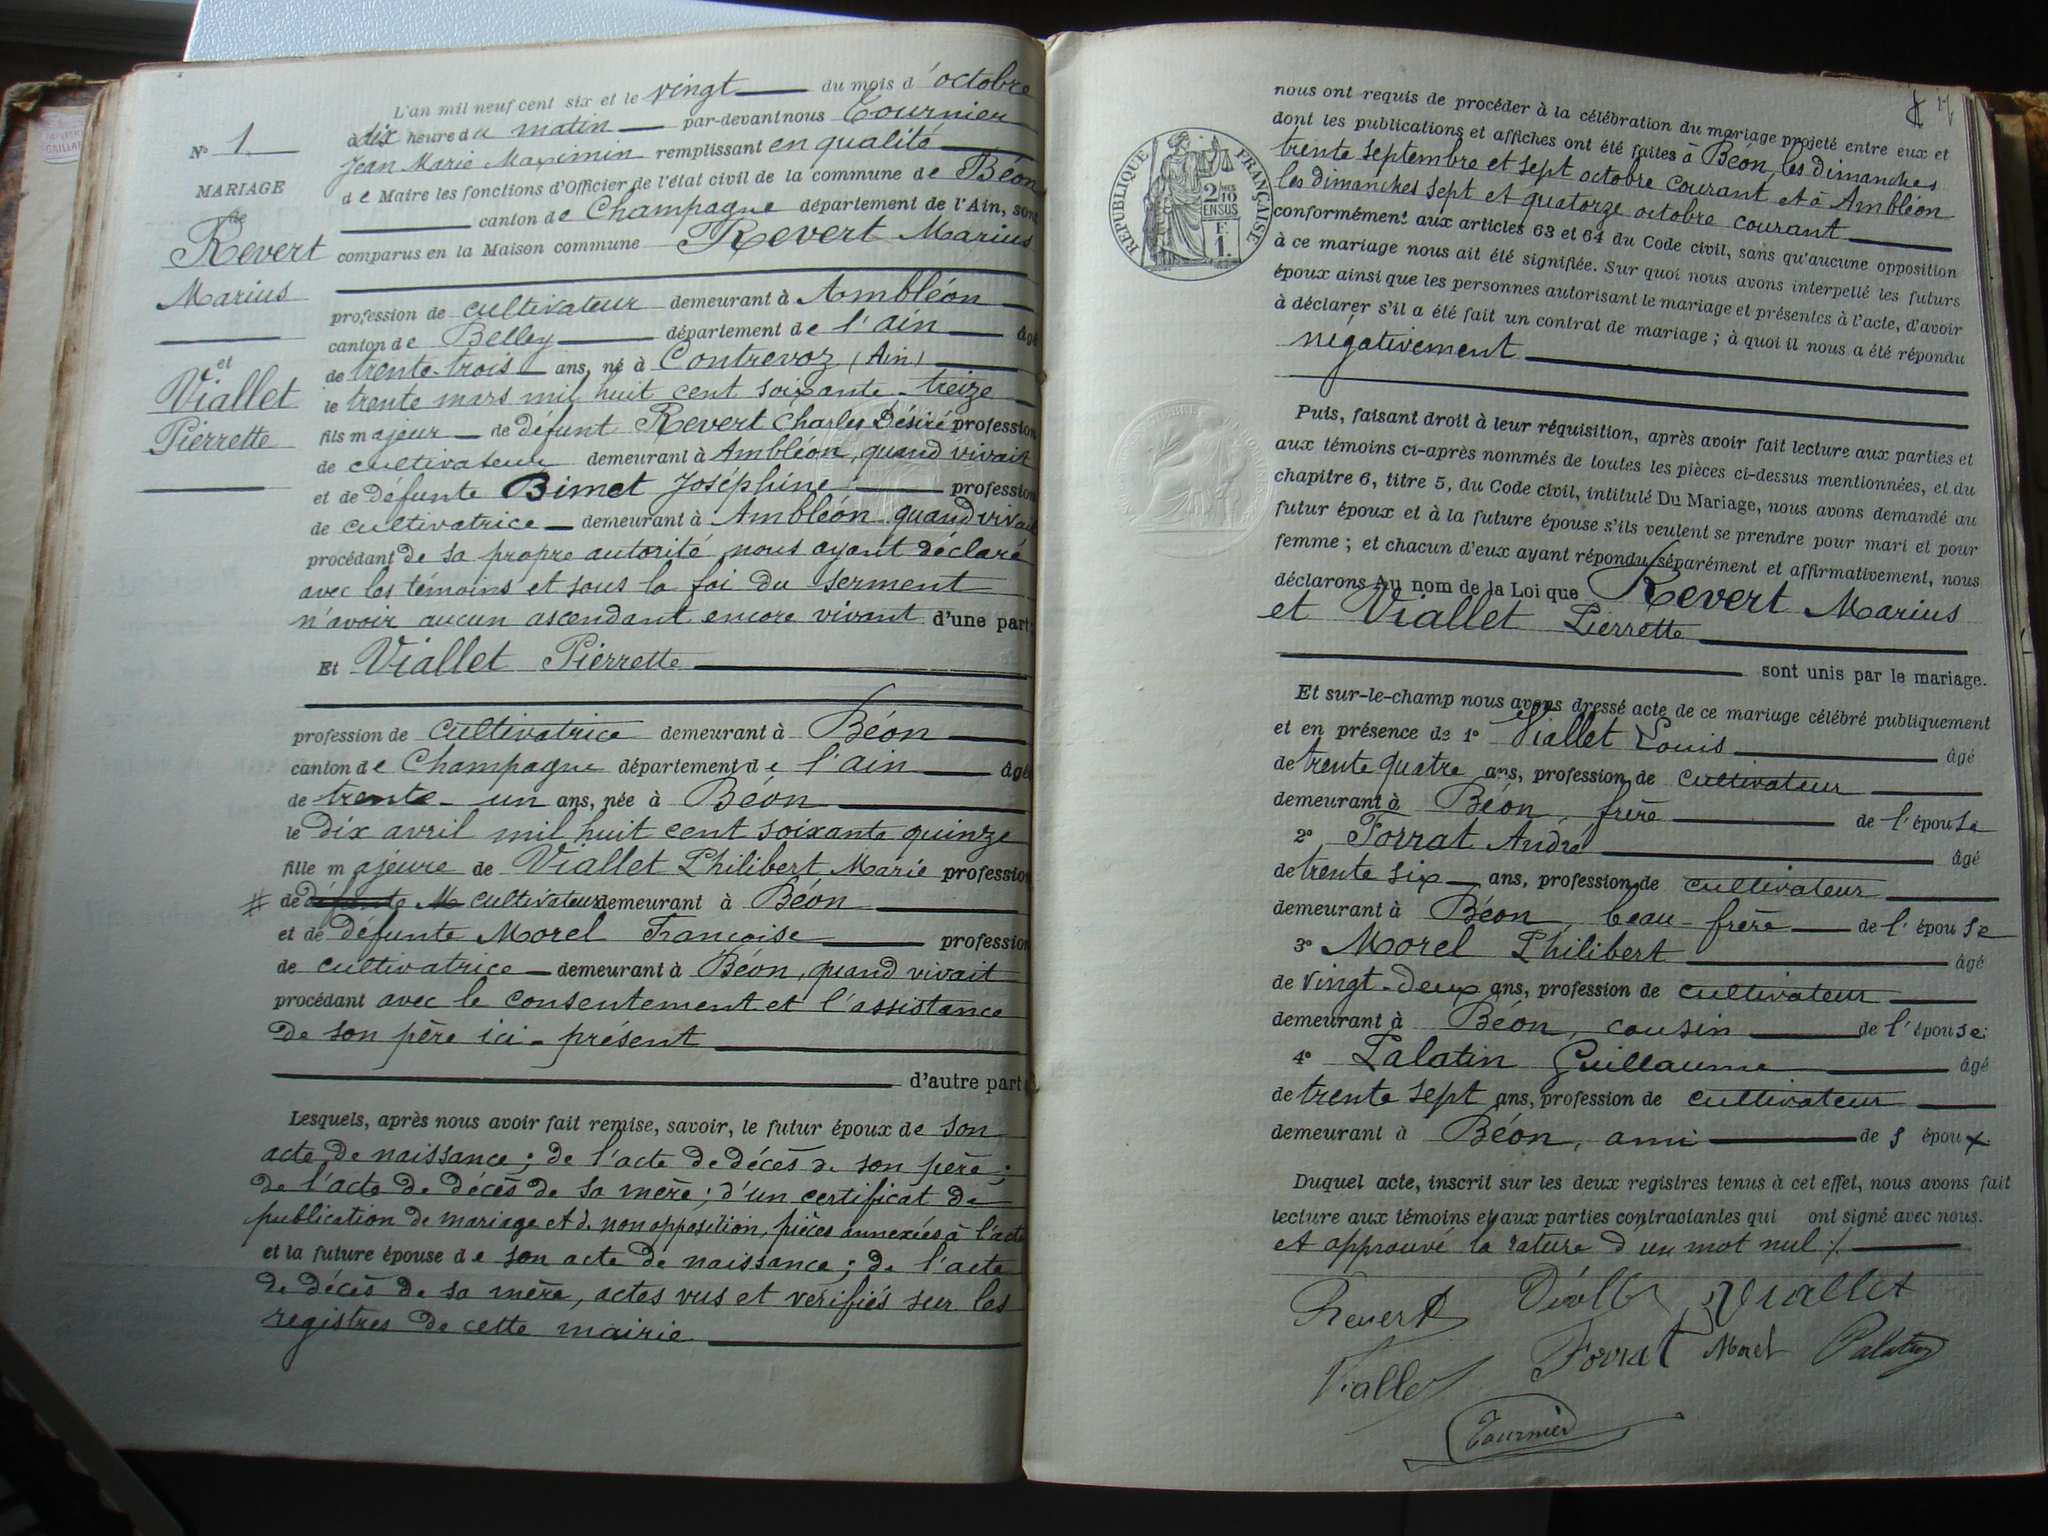 L'an mil neuf cent six et le vingt du mois d'octobre
à dix heure du matin par-devant nous Tournier
Jean Marie Maximin remplissant en qualité
de Maire les fonctions d'Officier de l'état civil de la commune de Béon
canton de Champagne département de l'Ain, sont
comparus en la Maison commune Revert Marius
profession de cultivateur demeurant à Ambléon
canton de Belley département de l'ain âgé
de trente-trois ans, né à Contrevoz (Ain)
le trente mars mil huit cent soixante-treize
fils majeur de défunt Revert Charles Désiré profession
de cultivateur demeurant à Ambléon, quand vivait
et de défunte Bimet Joséphine profession
de cultivatrice demeurant à Ambléon quand vivait
procédant de sa propre autorité nous ayant déclaré
avec les témoins et sous la foi du serment
n'avoir aucun ascendant encore vivant d'une part;
Et Viallet Pierrette
profession de cultivatrice demeurant à Béon
canton de Champagne département de l'ain âgé
de trente-un ans, née à Béon
le dix avril mil huit cent soixante quinze
fille majeure de Viallet Philibert Marie profession
# de défunte M cultivateur demeurant à Béon
et de défunte Morel Françoise profession
de cultivatrice demeurant à Béon, quand vivait
procédant avec le consentement et l'assistance
de son père ici-présent
d'autre part
Lesquels, après nous avoir fait remise, savoir, le futur époux de son
acte de naissance; de l'acte de décès de son père;
de l'acte de décès de sa mère; d'un certificat de
publication de mariage et de non opposition, pièces annexées à l'acte
et la future épouse de son acte de naissance; de l'acte
de décès de sa mère, actes vus et verifiés sur les
registres de cette mairie
No 1
MARIAGE
de
Revert
Marius
et
Viallet
Pierrette
nous ont requis de procéder à la célébration du mariage projeté entre eux et
dont les publications et affiches ont été faites à Béon, les dimanches
trente septembre et sept octobre courant et à Ambléon
les dimanches sept et quatorze octobre courant
conformément aux articles 63 et 64 du Code civil, sans qu'aucune opposition
à ce mariage nous ait été signifiée. Sur quoi nous avons interpellé les futurs
époux ainsi que les personnes autorisant le mariage et présentes à l'acte, d'avoir
à déclarer s'il a été fait un contrat de mariage; à quoi il nous a été répondu
négativement
Puis, faisant droit à leur réquisition, après avoir fait lecture aux parties et
aux témoins ci-après nommés de toutes les pièces ci-dessus mentionnées, et du
chapitre 6, titre 5, du Code civil, intitulé Du Mariage, nous avons demandé au
futur époux et à la future épouse s'ils veulent se prendre pour mari et pour
femme; et chacun d'eux ayant répondu séparément et affirmativement, nous
déclarons Au nom de la Loi que Revert Marius
et Viallet Pierrette
sont unis par le mariage.
Et sur-le-champ nous avons dressé acte de ce mariage célébré publiquement
et en présence de 1o Viallet Louis âgé
de trente quatre ans, profession de cultivateur
demeurant à Béon, frère de l'épouse
2o Forrat André âgé
de trente six ans, profession de cultivateur
demeurant à Béon, beau-frère de l'épouse
3o Morel Philibert âgé
de vingt-deux ans, profession de cultivateur
demeurant à Béon, cousin de l'épouse;
4o Palatin Guillaume âgé
de trente sept ans, profession de cultivateur
demeurant à Béon, ami de s époux
Duquel acte, inscrit sur les deux registres tenus à cet effet, nous avons fait
lecture aux témoins et aux parties contractantes qui ont signé avec nous.
et approuvé la rature d'un mot nul /.
Revert Viallet
Forrat Morel Palatin
Viallet
Tournier
RÉPUBLIQUE FRANÇAISE
2/10 EN SUS
F.
1.